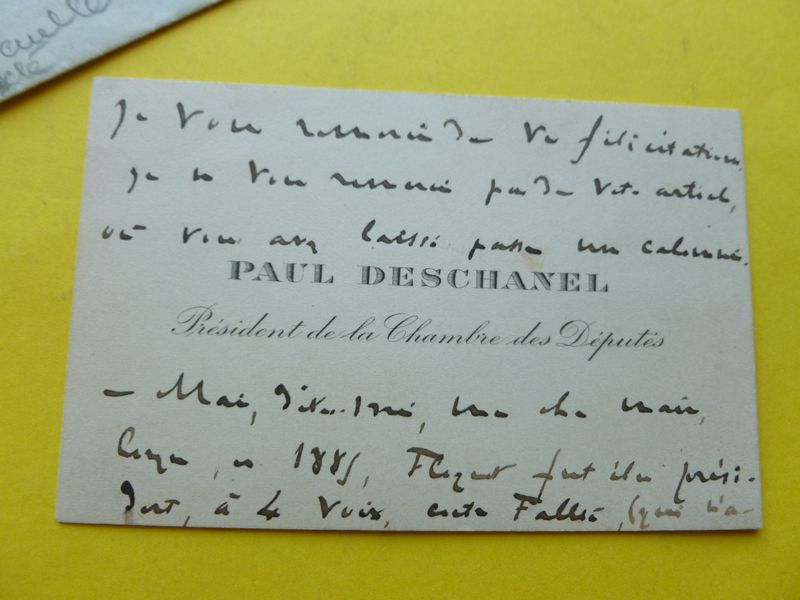 Je vous remercie de vos félicitations.
Je ne vous remercie pas de votre article,
où vous avez laissé passer une calomnie.
PAUL DESCHANEL
Président de la Chambre des Députés
— Mais, dites-moi, mon cher
en 1885, Floquet fut élu prési-
dent, à 4 voix, contre Fallières, (qui n'a-